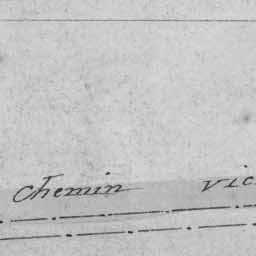 Chemin vic